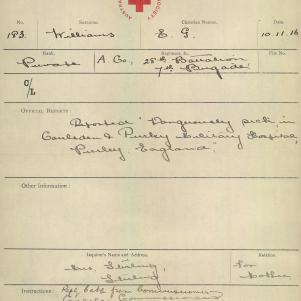 AUSTRA
SOCIETY
No. Surname. Christian Name.
193. Williams E. G. 10.11.16
Rank. Regiment, &c. File No.
Private A. Co, 28th Battalion
7th Brigade
C/L
OFFICIAL REPORTS:
Reported "Dangerously sick in
Coulsden & Purley Military Hospital,
Purley England".
Other Information:
Inquirer's Name and Address. Relation.
Mrs. Stirling For
Stirling Mother
Instructions: Commissioner